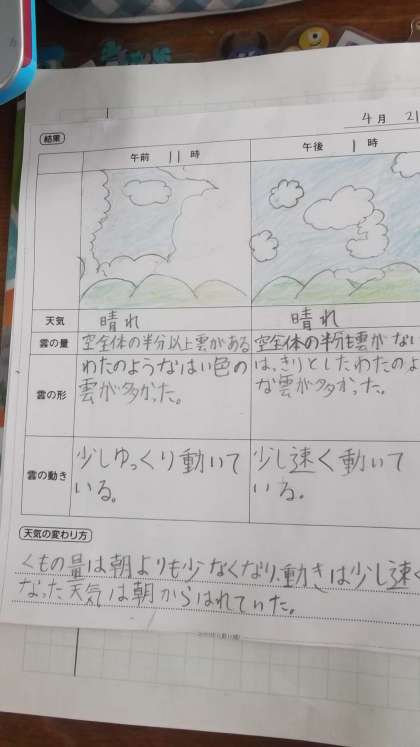 4月 21
結果
午前 11 時
午後 1 時
天気
晴れ
晴れ
雲の量
空全体の半分以上雲がある
空全体の半分も雲がない
雲の形
わたのようなはい色の
雲が多かった。
はっきりとしたわたのよ
な雲が多かった。
雲の動き
少しゆっくり動いて
いる。
少し速く動いて
いる。
天気の変わり方
くもの量は朝よりも少なくなり、動きは少し速く
なった天気は朝からはれていた。